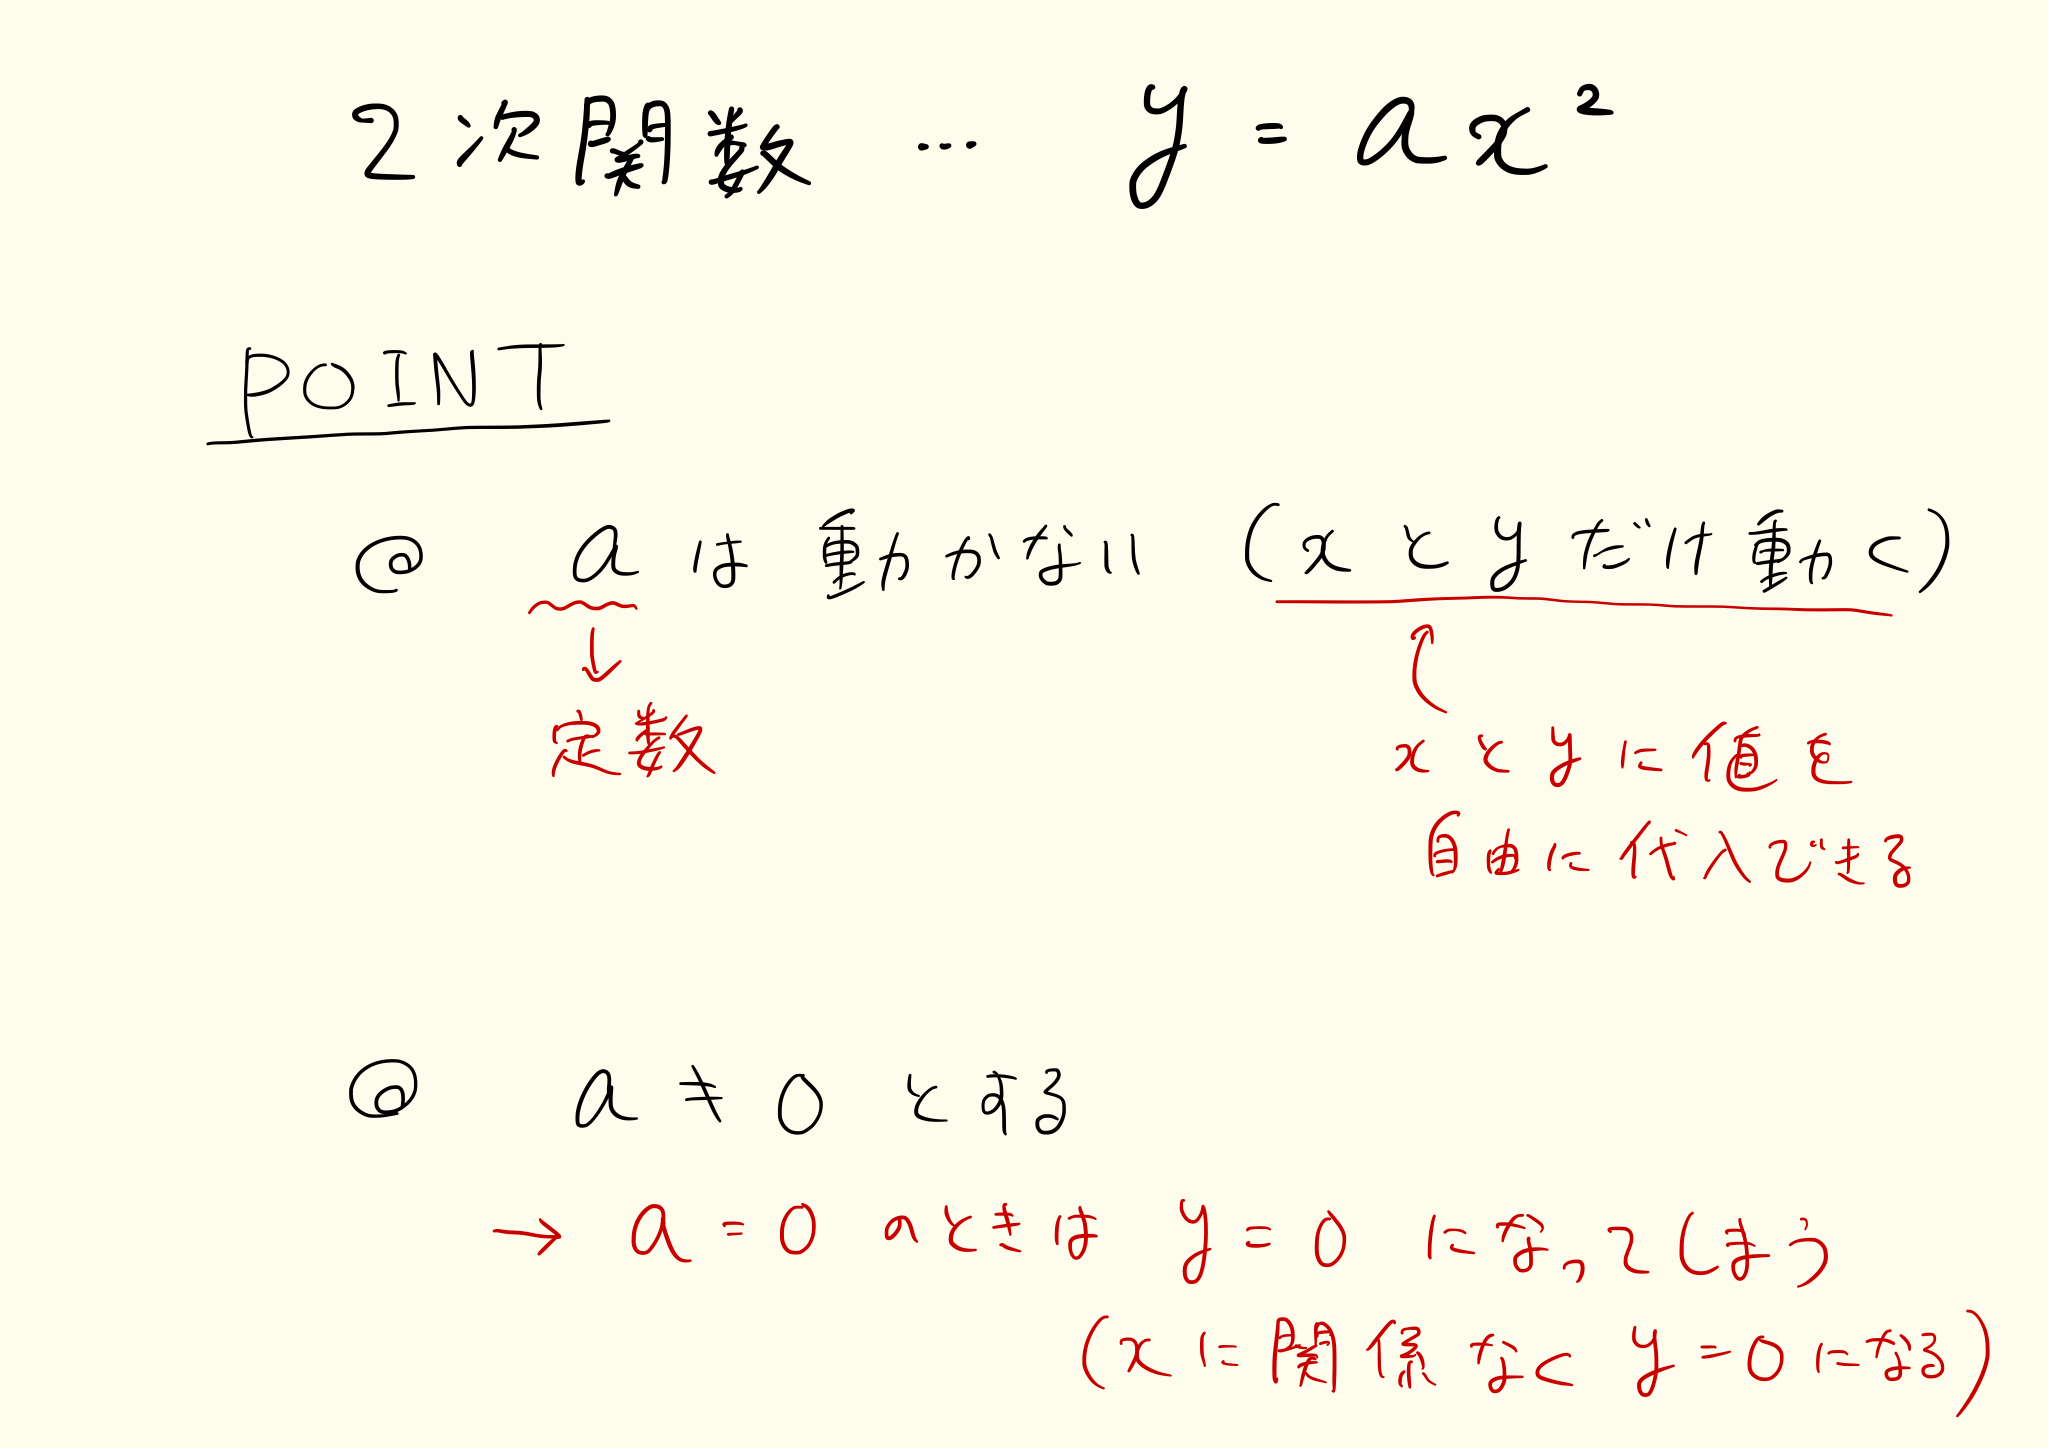 2次関数 … y = ax²
POINT
@ a は動かない (xとyだけ動く)
↓
定数
xとyに値を
自由に代入できる
@ a ≠ 0 とする
→ a = 0 のときは y = 0 になってしまう
(xに関係なく y = 0 になる)